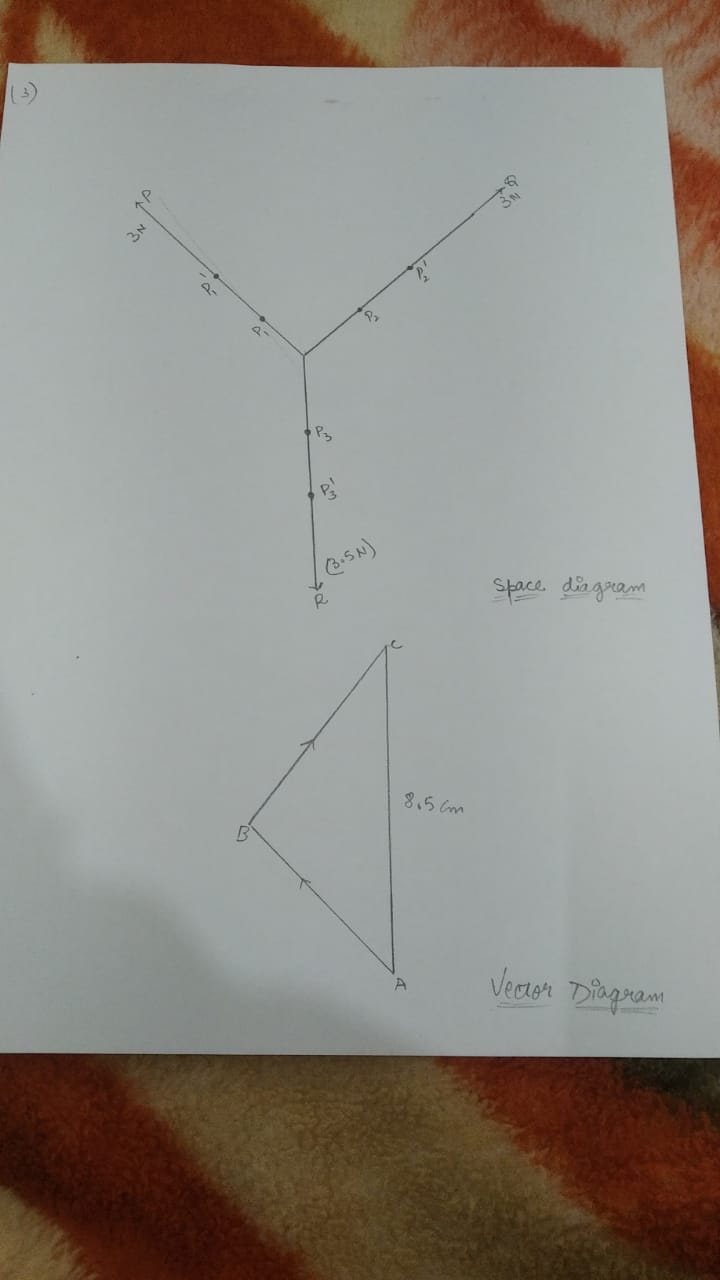 (3)
P
3N
P₁'
P₁
Q
3N
P₂'
P₂
P₃
P₃'
(3.5N)
R
Space diagram
C
8.5 cm
B
A
Vector Diagram